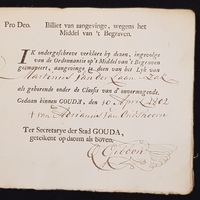 Pro Deo. Billiet van aangevinge, wegens het
Middel van 't Begraven.
IK ondergeschreve verklare by dezen, ingevolge
van de Ordonnantie op 't Middel van 't Begraven
geëmaneert, aangevinge te doen van het Lyk van
Martinus van der Laan
als gehorende onder de Classis van d' onvermogende.
Gedaan binnen GOUDA, den 10 April 1802
Adrianus van
Ter Secretarye der Stad GOUDA,
geteekent op datum als boven.